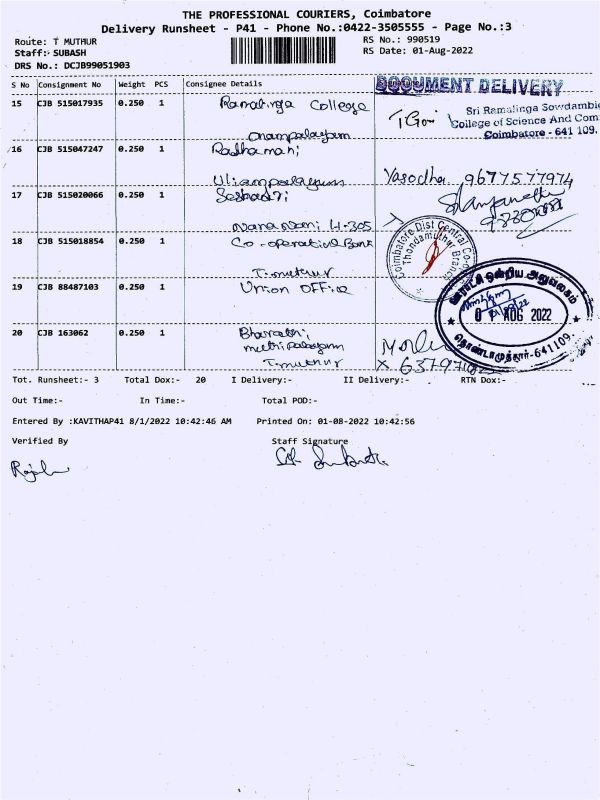 THE PROFESSIONAL COURIERS, Coimbatore
Delivery Runsheet - P41 - Phone No.:0422-3505555 - Page No.:3
Route: T MUTHUR
RS No.: 990519
Staff:- SUBASH
RS Date: 01-Aug-2022
DRS No.: DCJB99051903
S No Consignment No Weight PCS Consignee Details Signature
DOCUMENT DELIVERY
15 CJB 515017935 0.250 1 Ramalinga College
Sri Ramalinga Sowdambi
College of Science And Com
Coimbatore - 641 109.
onampalayam
16 CJB 515047247 0.250 1 Radhamani
Uliampalayam Yasodha 9677577974
17 CJB 515020066 0.250 1 Seshadri
4-305
18 CJB 515018854 0.250 1 Co-operative Bank
T.muthur
Coimbatore Dist Central Co-op
Thondamuthur Branch
19 CJB 88487103 0.250 1 Union Office
ஊராட்சி ஒன்றிய அலுவலகம்
0 AUG 2022
தொண்டாமுத்தூர்-641109.
20 CJB 163062 0.250 1 Bharathi
muthipalayam
T.muthur
Tot. Runsheet:- 3 Total Dox:- 20 I Delivery:- II Delivery:- RTN Dox:-
Out Time:- In Time:- Total POD:-
Entered By :KAVITHAP41 8/1/2022 10:42:46 AM Printed On: 01-08-2022 10:42:56
Verified By Staff Signature